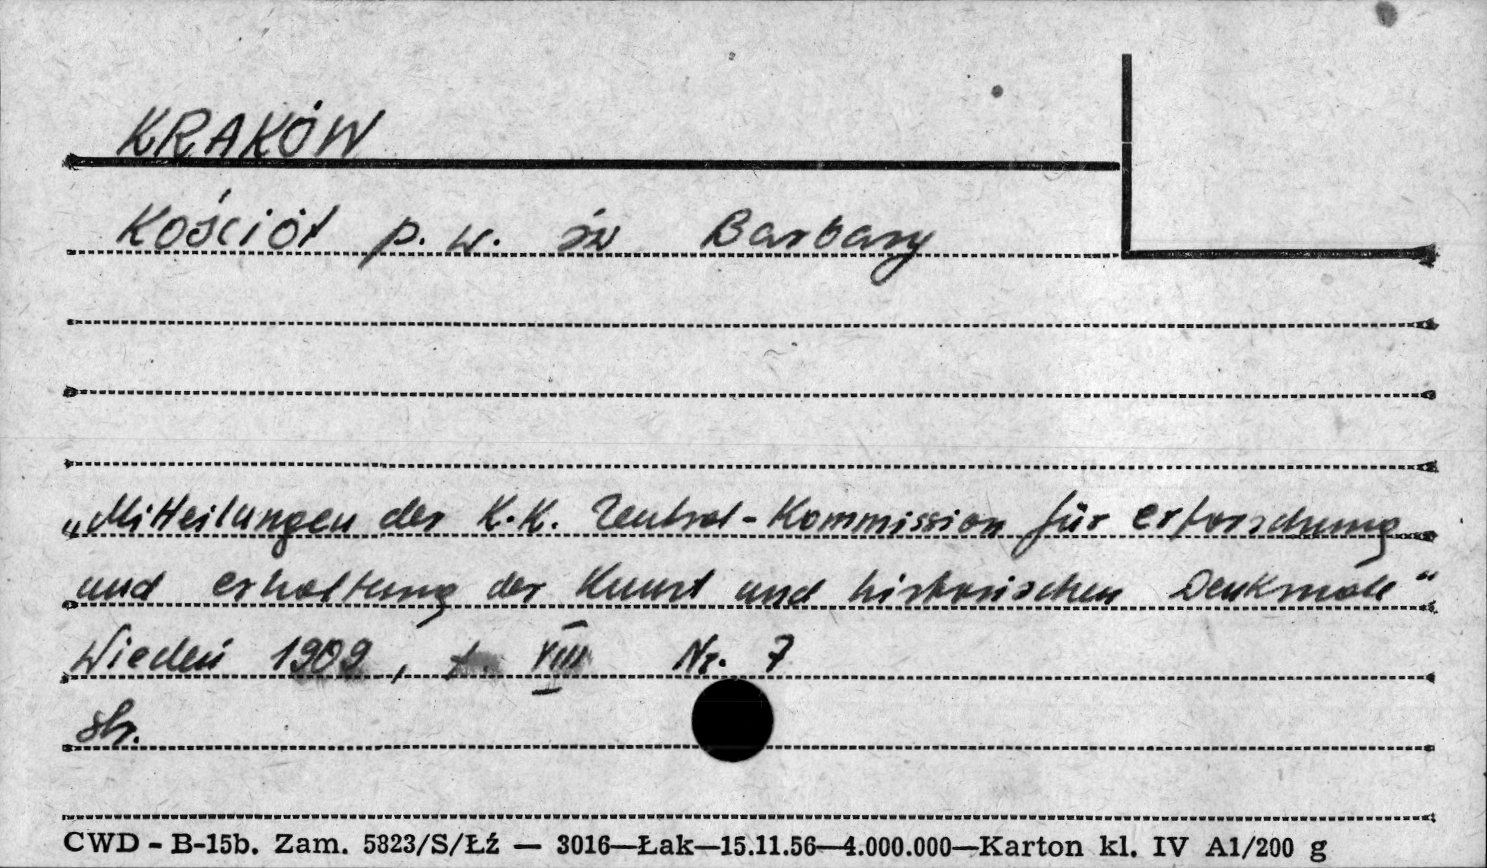 KRAKÓW
Kościół p.w. św Barbary
„Mitteilungen der K.K. Zentral-Kommission für erforschung
und erhaltung der Kunst und historischen Denkmale"
Wiedeń 1909, t. VIII Nr. 7
str.
CWD - B-15b. Zam. 5823/S/Łź — 3016—Łak—15.11.56—4.000.000—Karton kl. IV A1/200 g